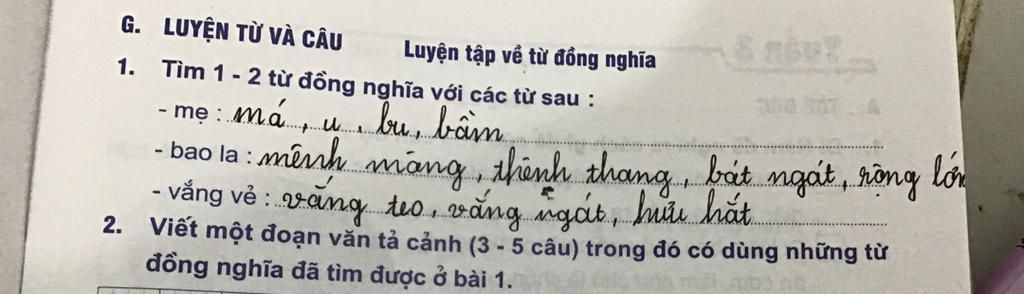 G. LUYỆN TỪ VÀ CÂU
Luyện tập về từ đồng nghĩa
1. Tìm 1 - 2 từ đồng nghĩa với các từ sau :
- mẹ : má, u, bu, bầm
- bao la : mênh mông, thênh thang, bát ngát, rộng lớn
- vắng vẻ : vắng teo, vắng ngát, hưu hắt
2. Viết một đoạn văn tả cảnh (3 - 5 câu) trong đó có dùng những từ
đồng nghĩa đã tìm được ở bài 1.